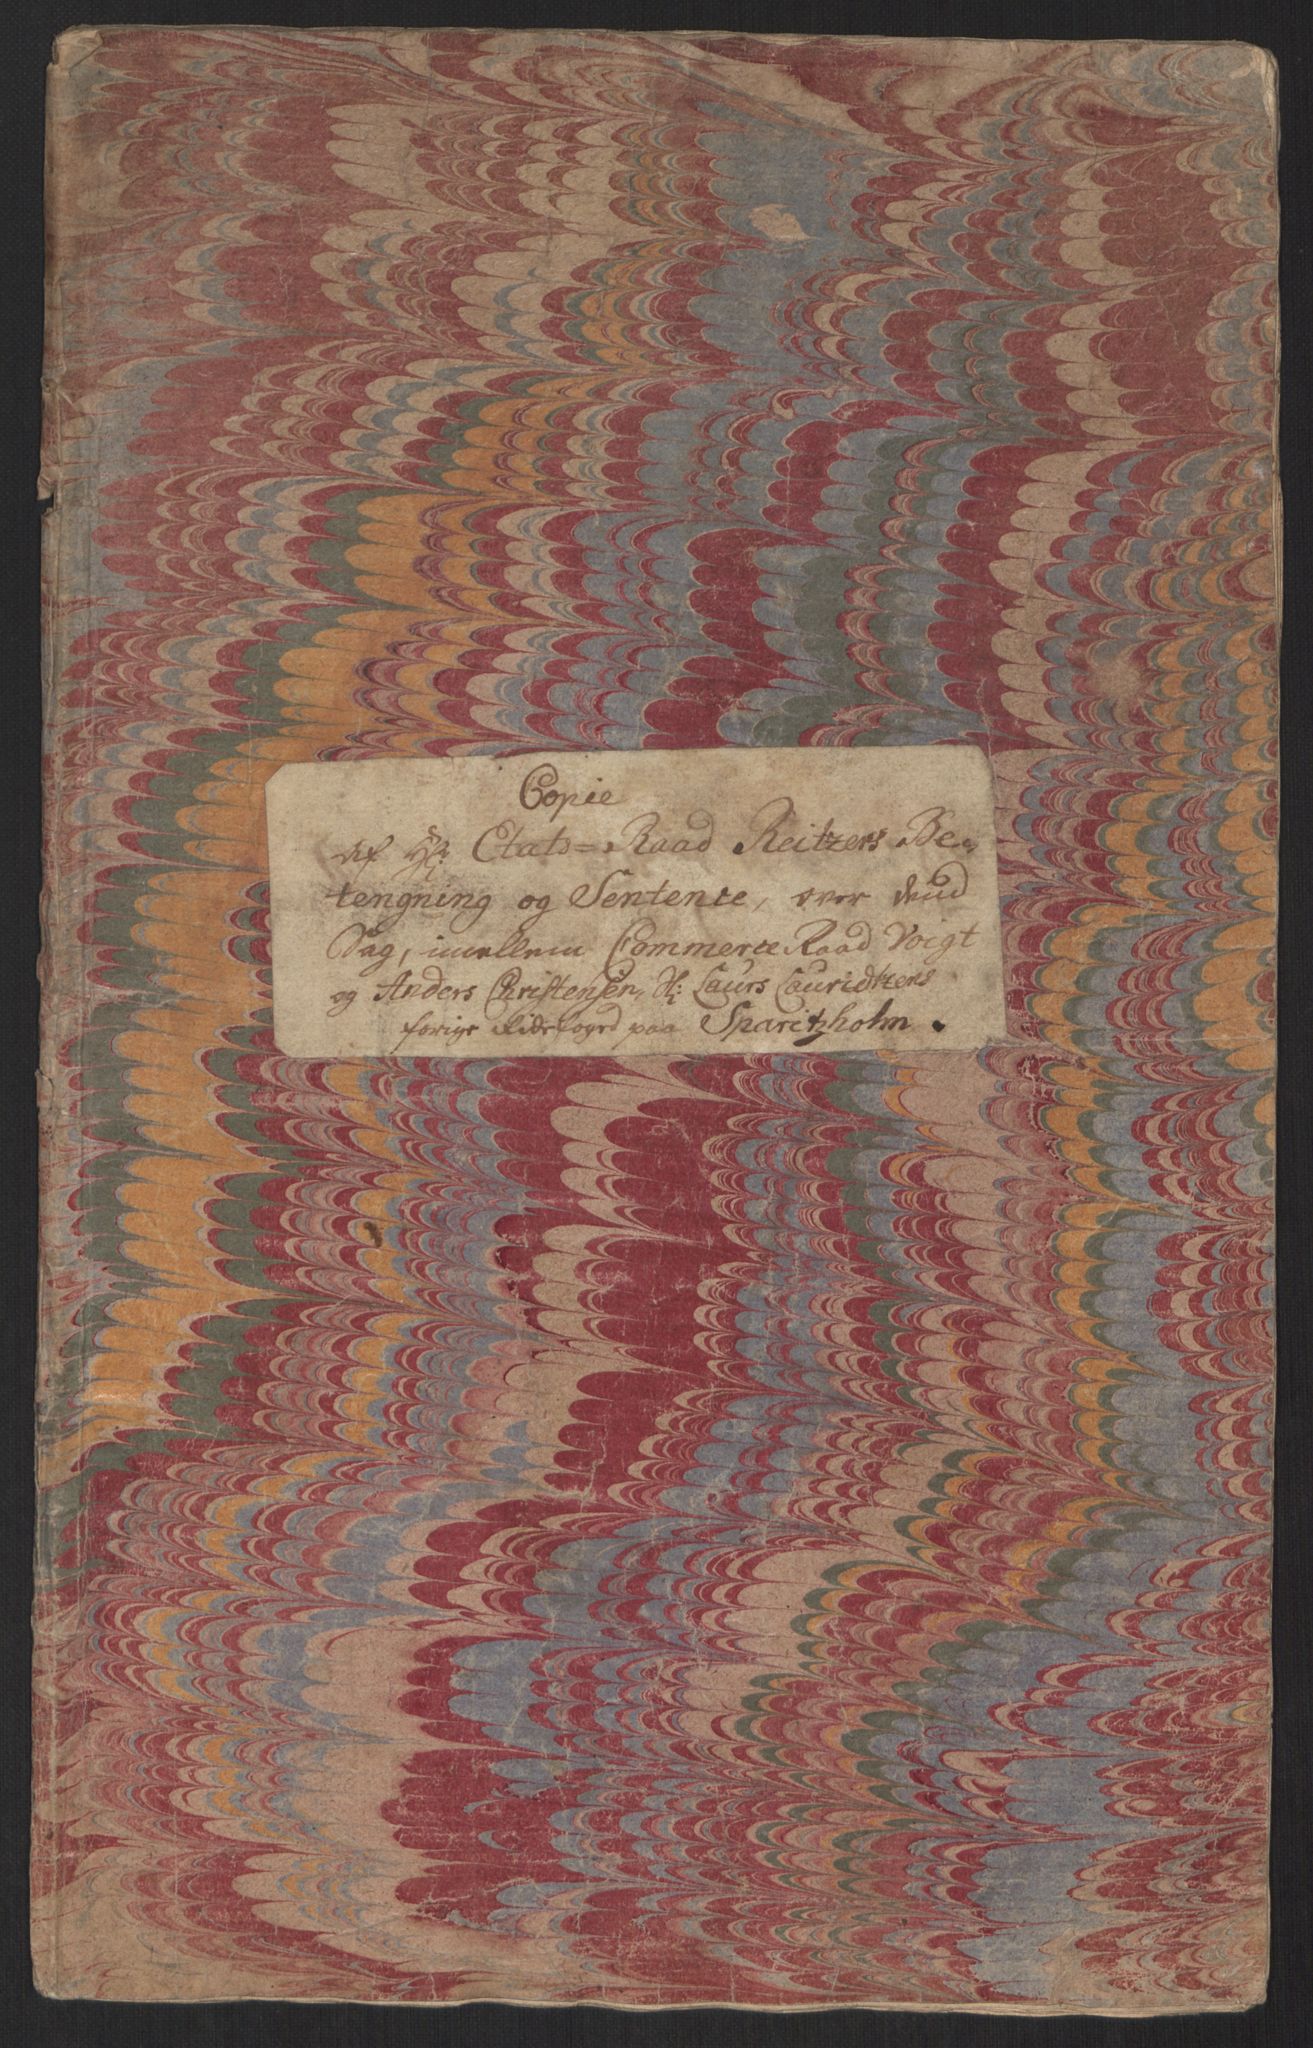 Copie
af Hr: Etats=Raad Reitzers Be-
tengning og Sentence, over dend
Sag, imellem Commerce Raad Voigt
og Anders Christensen, Hr: Laurs Lauridtzens
forige Ridefoged paa Sparitzholm.